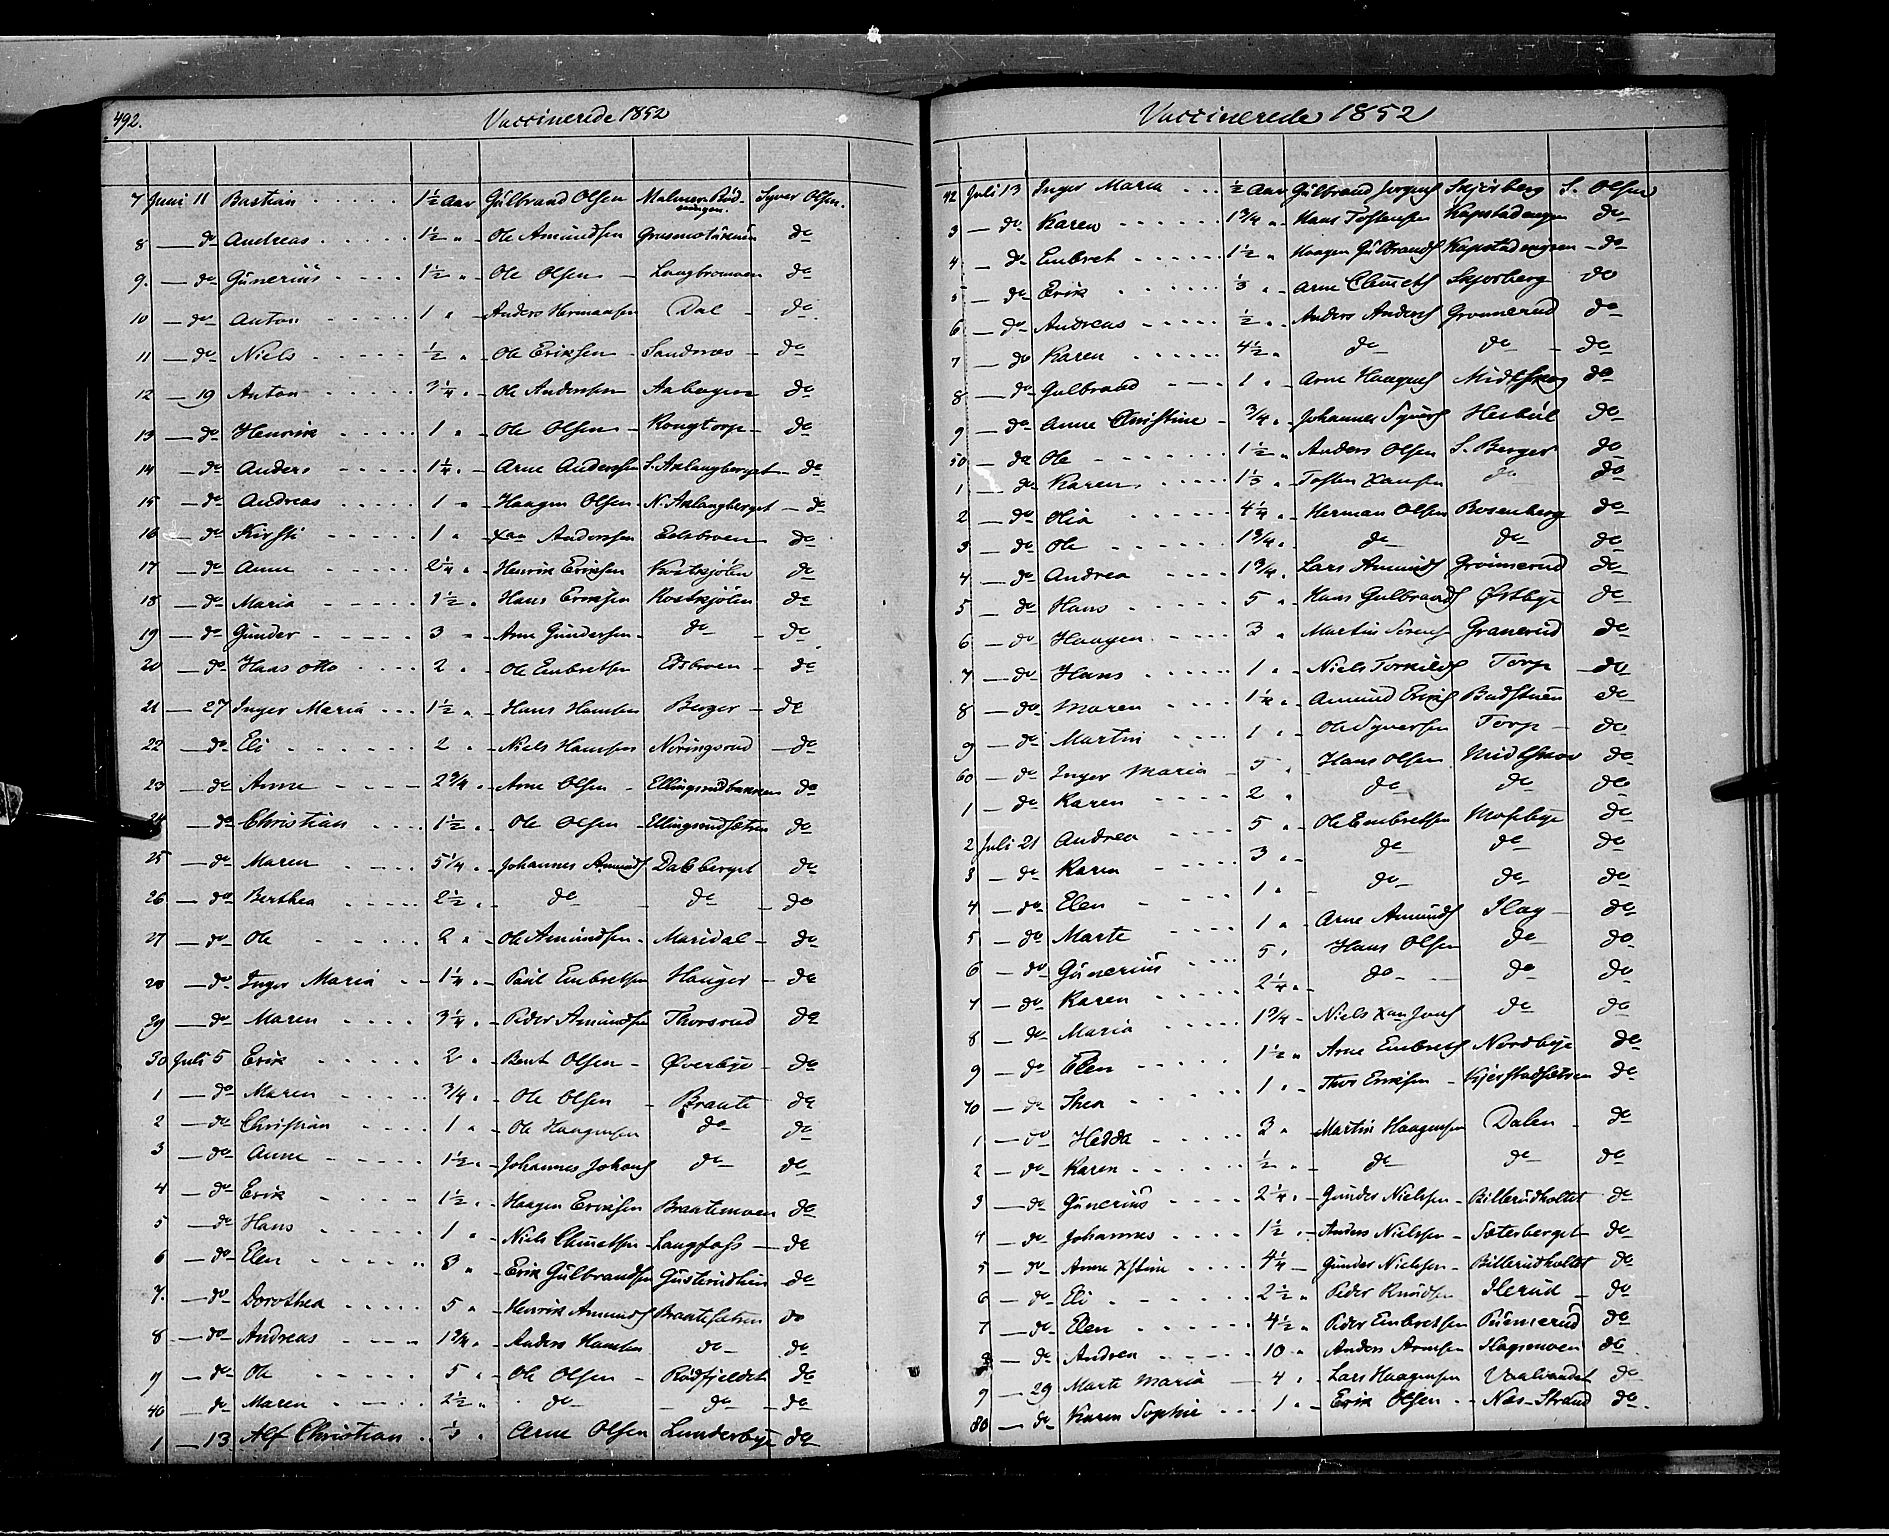 492.
Vaccinerede 1852
7 Juni 11 Bastian 1½ Aar Gülbrand Olsen Malmer Rød- Syver Olsen.
8 — do Andreas 1½ " Ole Amündsen do
9. — do Günerius 1½ " Ole Olsen Langbromoen do
10 — do Anton 1 " Anders Hermansen Dal do
11 — do Niels ½ " Ole Eriksen Sandnæs do
12 — 19 Anton 3¼ " Ole Anderssen Aabogen do
13 — do Henrik 1 " Ole Olsen Kongtorp do
14 — do Anders 1¼ " Arne Anderssen S. Aklangberget do
15 — do Andreas 1 " Haagen Olsen N. Aklangberget do
16 — do Kirsti 1 " Xan Anderssen Edsbroen do
17 — do Anne 2¼ " Henrik Eriksen Kostkjølen do
18 — do Maria 1½ " Hans Eriksen Kostkjølen do
19 — do Günder 3 " Arne Gündersen do do
20 — do Hans Otto 2 " Ole Embretsen Edsbroen do
21 — 27 Inger Maria 1½ " Hans Hansen Berger do
22 — do Eli 2 " Niels Hansen Noringsrud do
23 — do Anne 2¾ " Arne Olsen Ellingsrudbakken do
24 — do Christian 1½ " Ole Olsen Ellingsrudsætren do
25 — do Maren 5¼ " Johannes Amünds Dalsberget do
26 — do Berthea 2½ " do do do
27 — do Ole 2 " Ole Amündsen Maridal do
28 — do Inger Maria 1¼ " Paul Embretsen Hauger do
29 — do Maren 3¼ " Peder Amündsen Thorsrud do
30 Juli 5 Erik 2 " Bent Olsen Øverbye do
1 — do Maren ¾ " Ole Olsen Braate do
2 — do Christian 1 " Ole Haagensen do do
3 — do Anne 1½ " Johannes Johans do do
4 — do Erik 1½ " Haagen Eriksen Braatemoen do
5 — do Hans 1 " Niels Clemetsen Langfoss do
6 — do Elen 3 " Erik Gülbrandsen Güsterudhien do
7. — do Dorothea 5 " Henrik Amünds Braatesætren do
8 — do Andreas 1¾ " Anders Hansen do do
9 — do Ole 5 " Ole Olsen Rödfjeldet do
40 — do Maren 2½ " do do do
1 — 13 Alf Christian ⅓ " Arne Olsen Lunderbye do
Vaccinerede 1852
42 Juli 13 Inger Maria ½ Aar Gülbrand Jörgens Skjørberg S. Olsen
3 — do Karen 1¾ " Hans Tostensen Kapstadengen do
4 — do Embret 1½ " Haagen Gülbrands Kapstadengen do
5 — do Erik ⅓ " Arne Clemets Skjørberg do
6 — do Andreas ½ " Anders Anders Grønnerud do
7 — do Karen 4½ " do do do
8 — do Gulbrand 1 " Arne Haagens Midtskog do
9 — do Anne Christine ¾ " Johannes Syvers Herbül do
50 — do Ole 1½ " Anders Olsen S. Berger do
1 — do Karen 1⅓ " Tosten Hansen do do
2 — do Olia 4¼ " Herman Olsen Rosenberg do
3 — do Ole 1¾ " do do do
4 — do Andrea 1¾ " Lars Amünds Grönnerud do
5 — do Hans 5 " Hans Gulbrands Østbye do
6 — do Haagen 3 " Martin Sørens Granerud do
7 — do Hans 1 " Niels Torkilds Torp do
8 — do Maren 1¼ " Amünd Eriks Badstuen do
9 — do Martin 1 " Ole Syversen Torp do
60 — do Inger Maria 5 " Hans Olsen Midtskov do
1 — do Karen 2 " do do do
2 Juli 21 Andrea 5 " Ole Embretsen Mosebye do
3 — do Karen 3 " do do do
4 — do Elen 1 " do do do
5 — do Marte 1 " Arne Amünds Ilag do
6 — do Günerius 5 " Hans Olsen do do
7 — do Karen 2¼ " do do do
8 — do Maria 1¾ " Niels Xan Jons do do
9 — do Elen 1½ " Arne Embrets Nordbye do
70 — do Thea 1 " Thor Eriksen Kjerstadsætren do
1 — do Hedda 3 " Martin Haagensen Dalen do
2 — do Karen ½ " do do do
3 — do Günerius 2¼ " Gunder Nielsen Billerudholtet do
4 — do Johannes 1½ " Anders Nielsen Sæterberget do
5 — do Anne Xstine 4¼ Gunder Nielsen Billerudholtet do
6 — do Eli 2½ " Peder Knüdsen Ilerüd do
7 — do Elen 4½ " Peder Embretsen Pünnerüd do
8 — do Andrea 10 " Anders Arnesen Ilagsmoen do
9 — 29 Marte Maria 4 " Lars Haagensen Vaalvandet do
80 — do Karen Sophie 1 " Erik Olsen Næs-Strand do